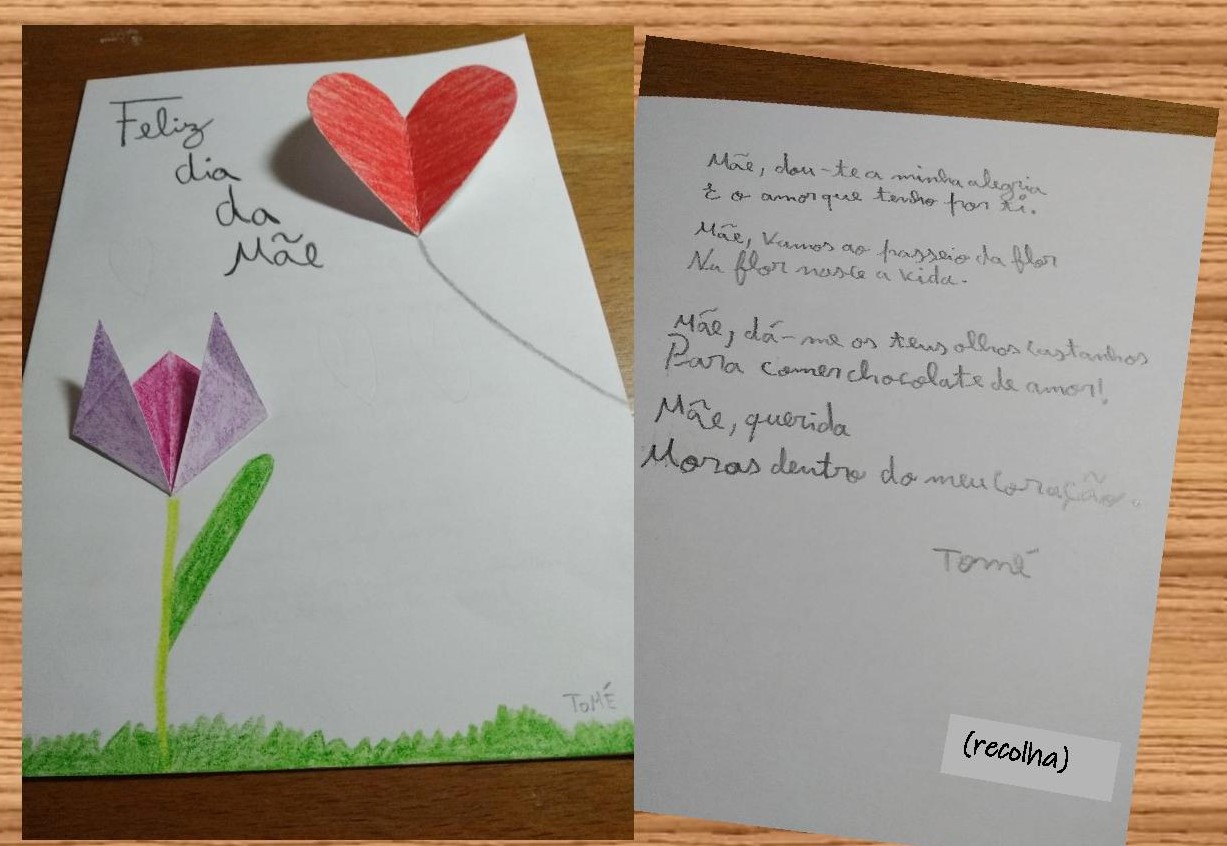 Feliz
dia
da
Mãe
TOMÉ
Mãe, dou-te a minha alegria
E o amor que tenho por ti.
Mãe, vamos ao passeio da flor
Na flor nasce a vida.
Mãe, dá-me os teus olhos castanhos
Para comer chocolate de amor!
Mãe, querida
Moras dentro do meu coração.
Tomé
(recolha)